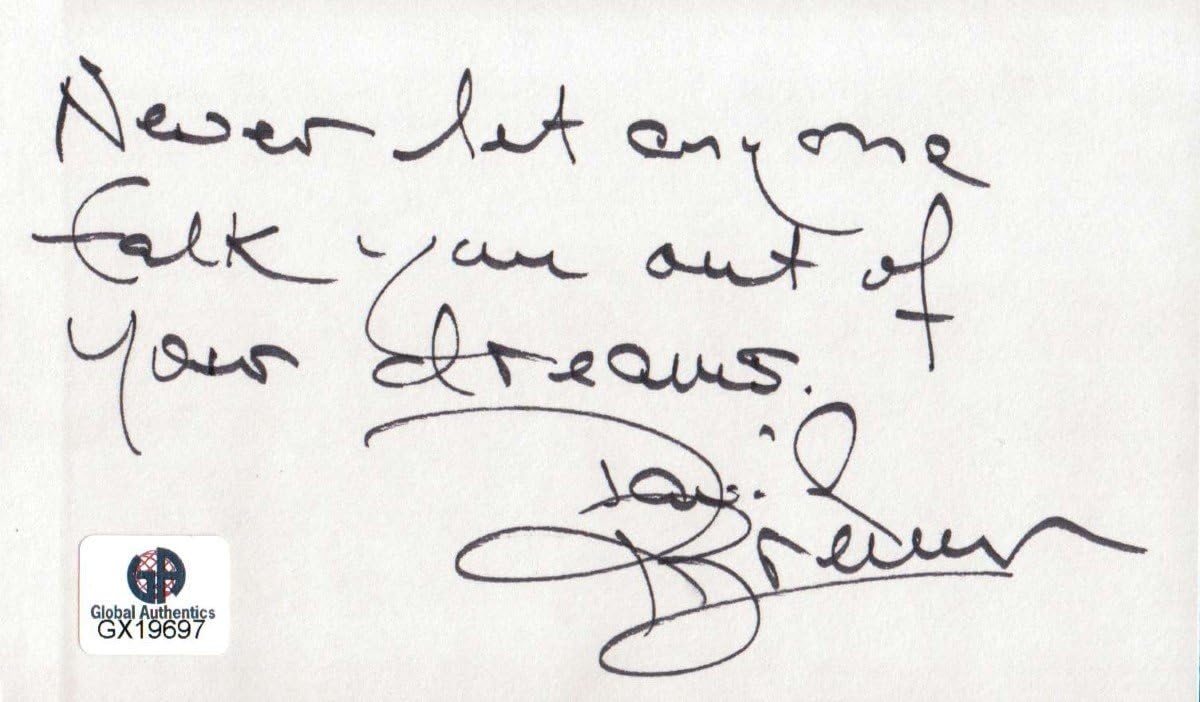 Never let anyone
talk you out of
your dreams.
David
Brenner
GA
Global Authentics
GX19697